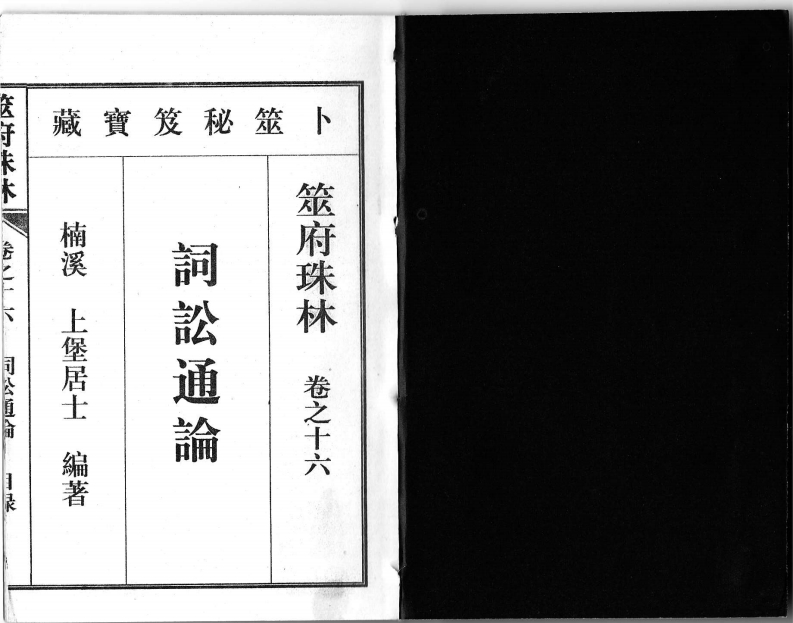 卜筮秘笈寶藏
筮府珠林 卷之十六
詞訟通論
楠溪 上堡居士 編著
筮府珠林 卷之十六 詞訟通論 目録